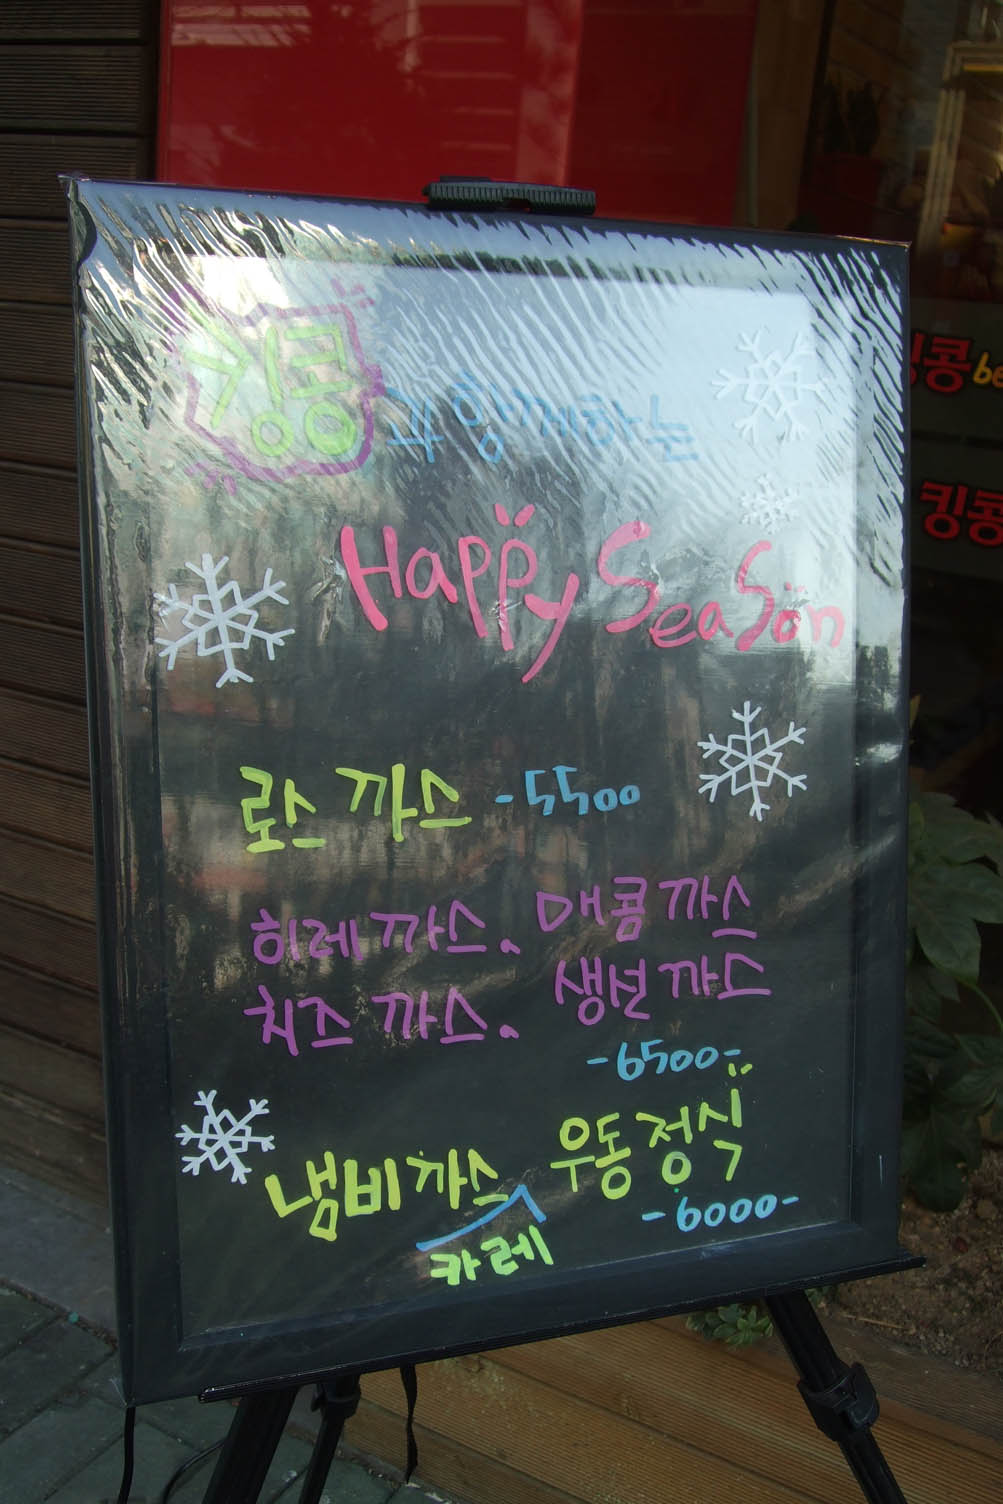 킹콩과 함께하는
Happy SeaSon
로스까스 -5500
히레까스. 매콤까스
치즈까스. 생선까스
-6500-
냄비까스 우동정식
카레
-6000-
콩be
킹콩